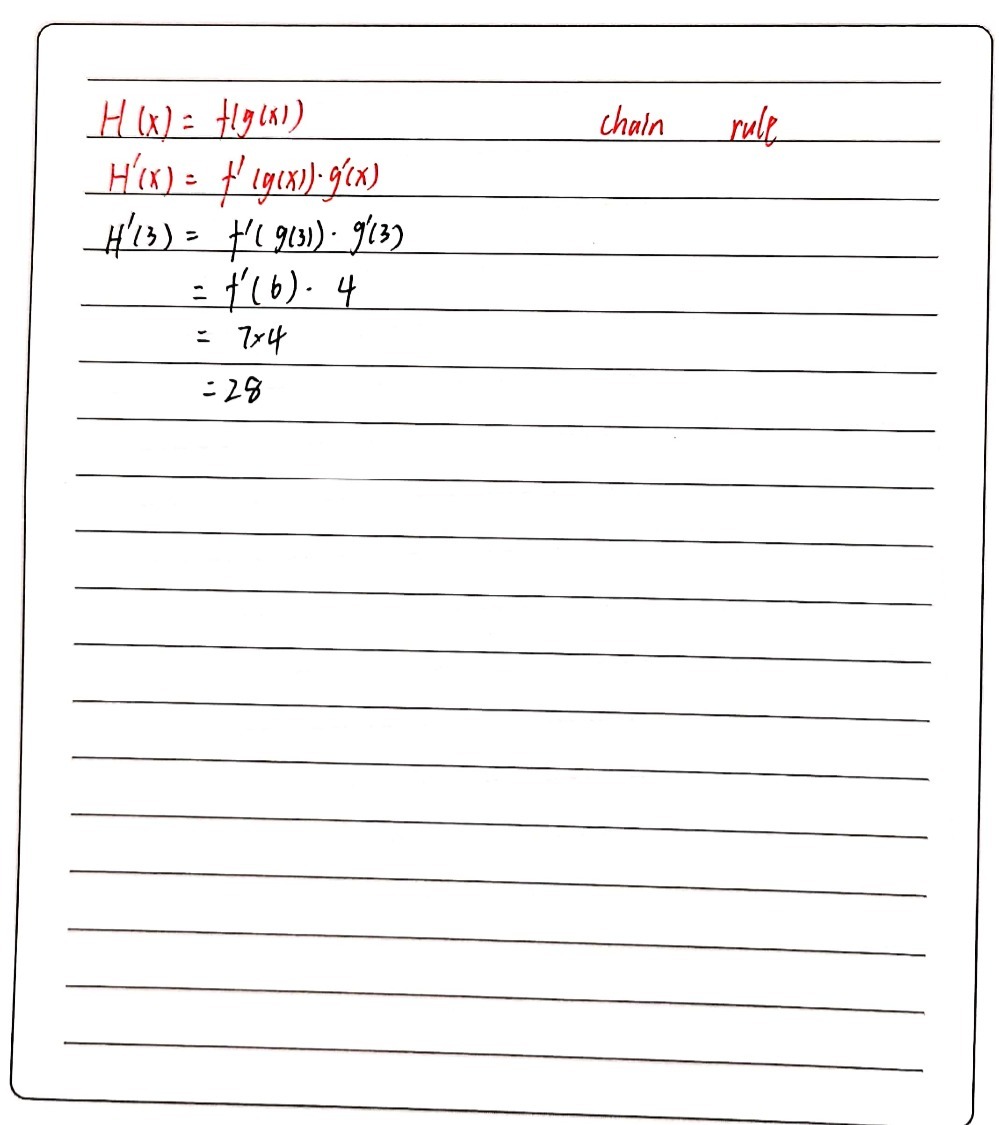 H(x) = f(g(x)) chain rule
H'(x) = f'(g(x))·g'(x)
H'(3) = f'(g(3))·g'(3)
= f'(6)· 4
= 7×4
= 28